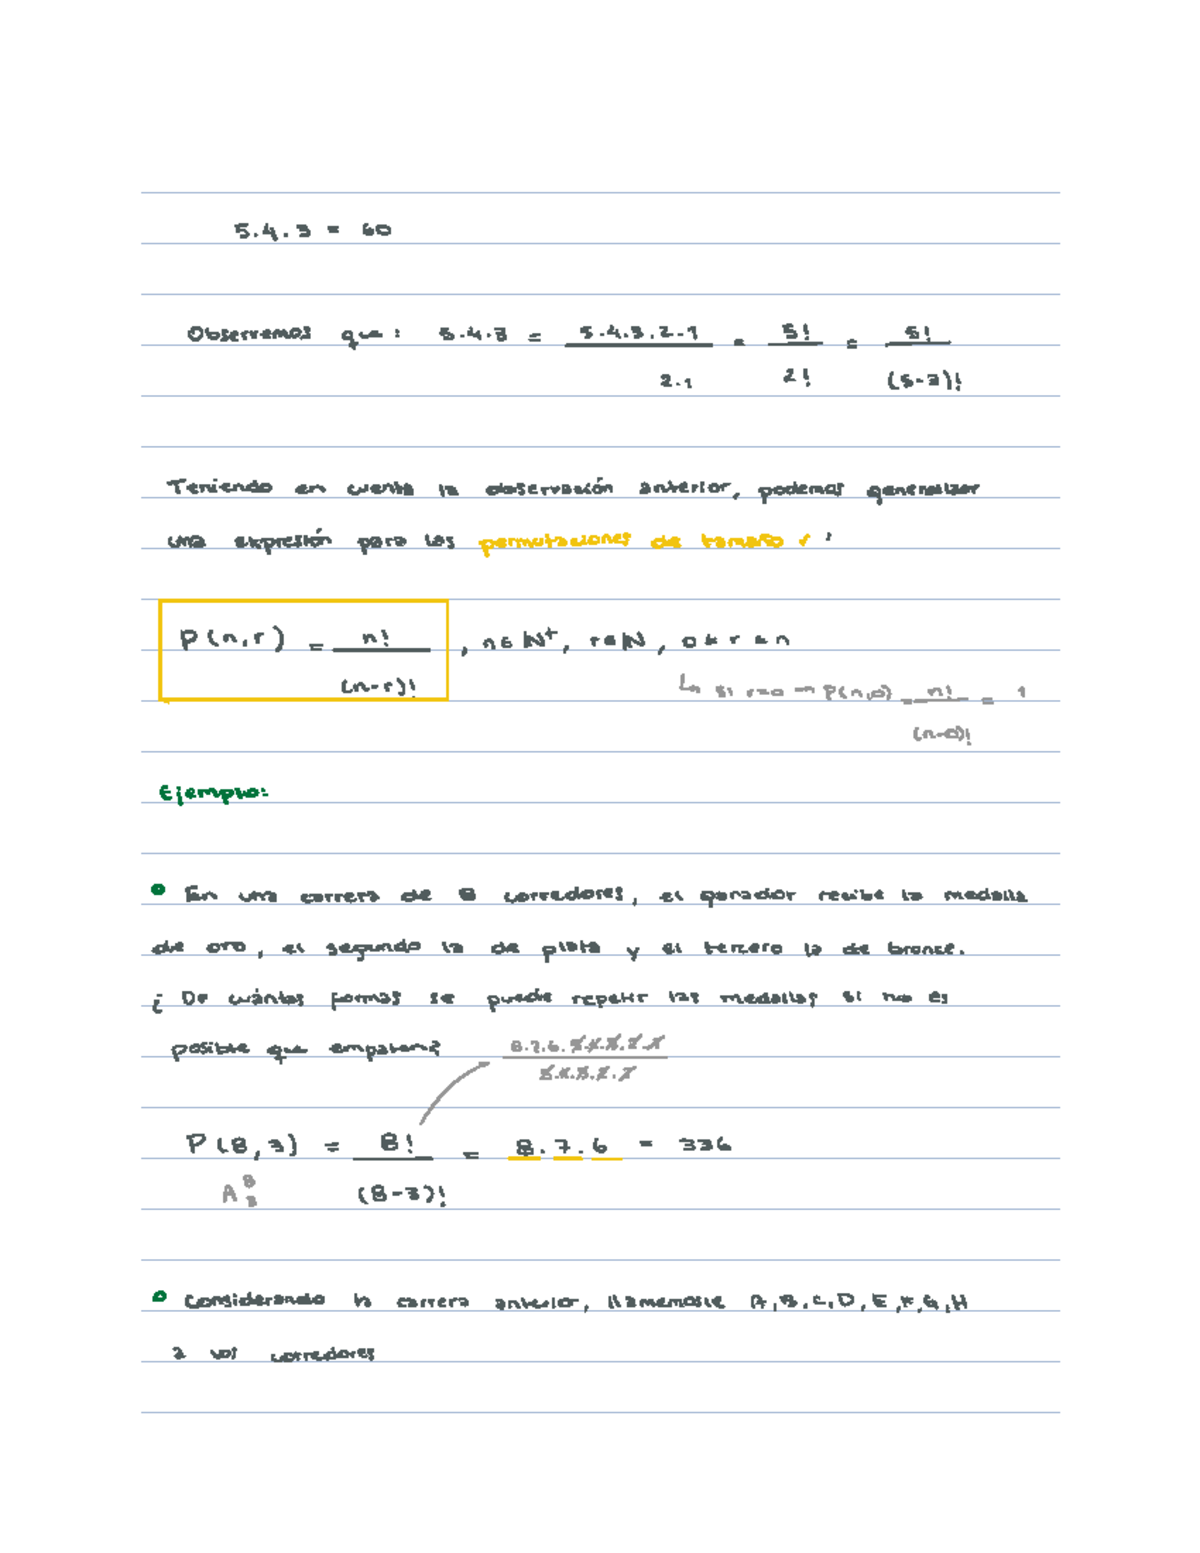 5.4.3 = 60
Observemos que: 5.4.3 = 5.4.3.2.1 / 2.1 = 5! / 2! = 5! / (5-3)!
Teniendo en cuenta la observación anterior, podemos generalizar
una expresión para las permutaciones de tamaño r :
P(n,r) = n! / (n-r)! , n∈ℕ⁺, r∈ℕ, 0≤r≤n
↳ si r=0 → P(n,0) = n! / (n-0)! = 1
Ejemplo:
• En una carrera de 8 corredores, el ganador recibe la medalla
de oro, el segundo la de plata y el tercero la de bronce.
¿De cuántas formas se puede repetir las medallas si no es
posible que empaten?
8.7.6.5.4.3.2.1 / 5.4.3.2.1
P(8,3) = 8! / (8-3)! = 8.7.6 = 336
A⁸₃
• Considerando la carrera anterior, llamemosle A,B,C,D,E,F,G,H
a los corredores